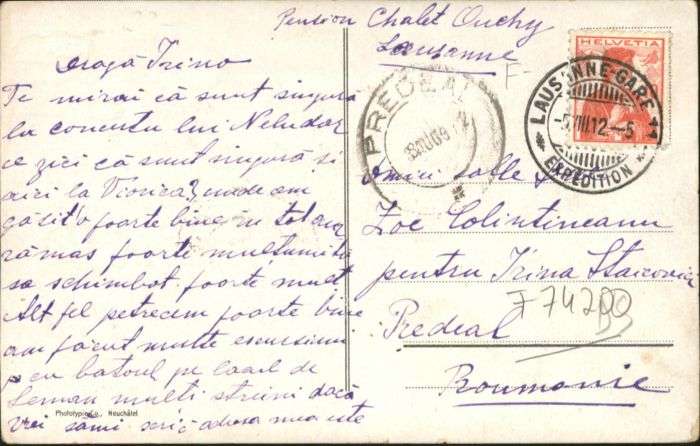 Pension Chalet Ouchy
Lausanne
Dragă Irino
Te mirai că sunt singură
la concertu lui Neludar
ce zici că sunt singură și
aici la Viorica, unde am
găsit'o foarte bine în tot
rămas foarte mulțumită
sa schimbat foarte mult
Alt fel petrecem foarte bine
am făcut multe escursiuni
cu batoul pe lacul de
Leman multi streini dacă
vrei sămi scrii adresa mea este
Phototypie Co., Neuchâtel
HELVETIA
LAUSANNE-GARE
-5.VIII.12.-5
EXPEDITION
PREDEAL
AUG 912
F-
Zoe Colintineanu
pentru Irina Staicovici
Predeal
Roumanie
F 74200